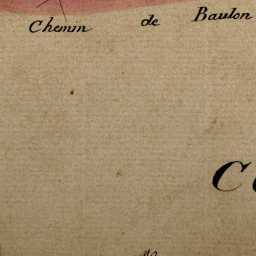 Chemin de Baulon
C